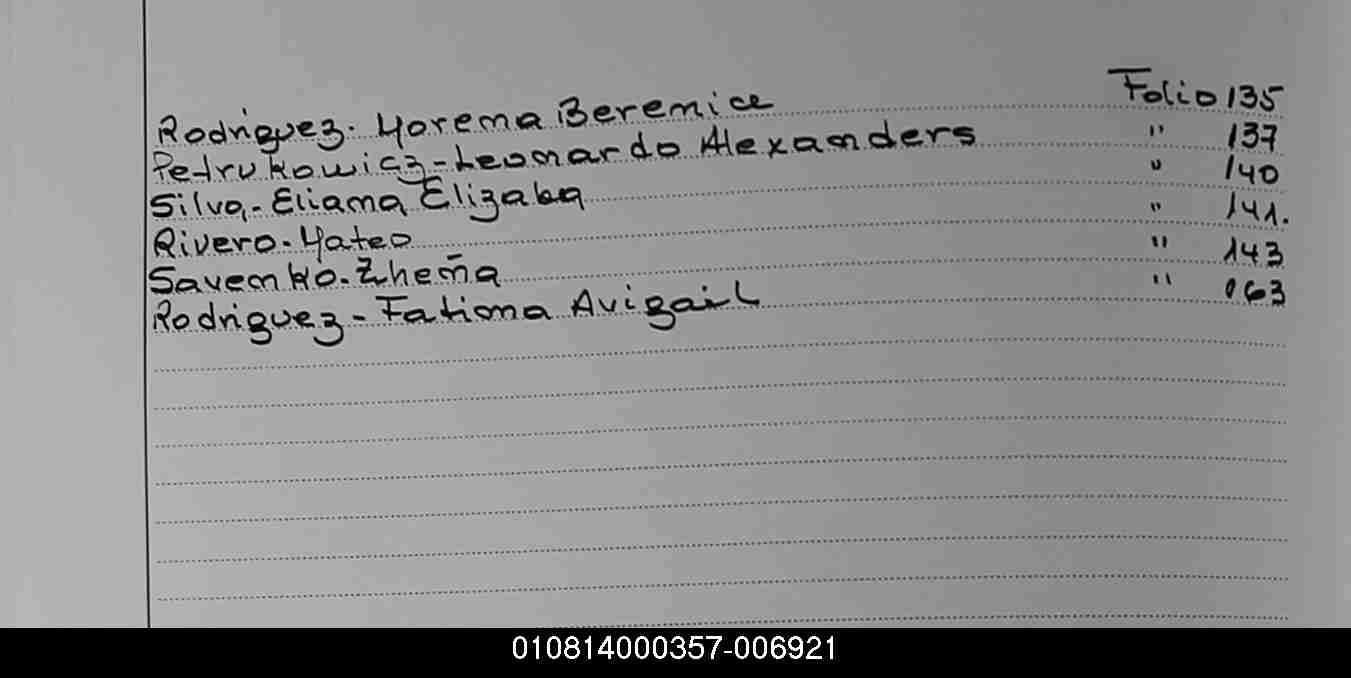 Rodriguez. Morena Berenice Folio 135
Petrukowicz - Leonardo Alexanders " 137
Silva, - Eliana Elizaba " 140
Rivero. Mateo " 141.
Savenko. Zheña " 143
Rodriguez - Fatima Avigail " 063
010814000357-006921